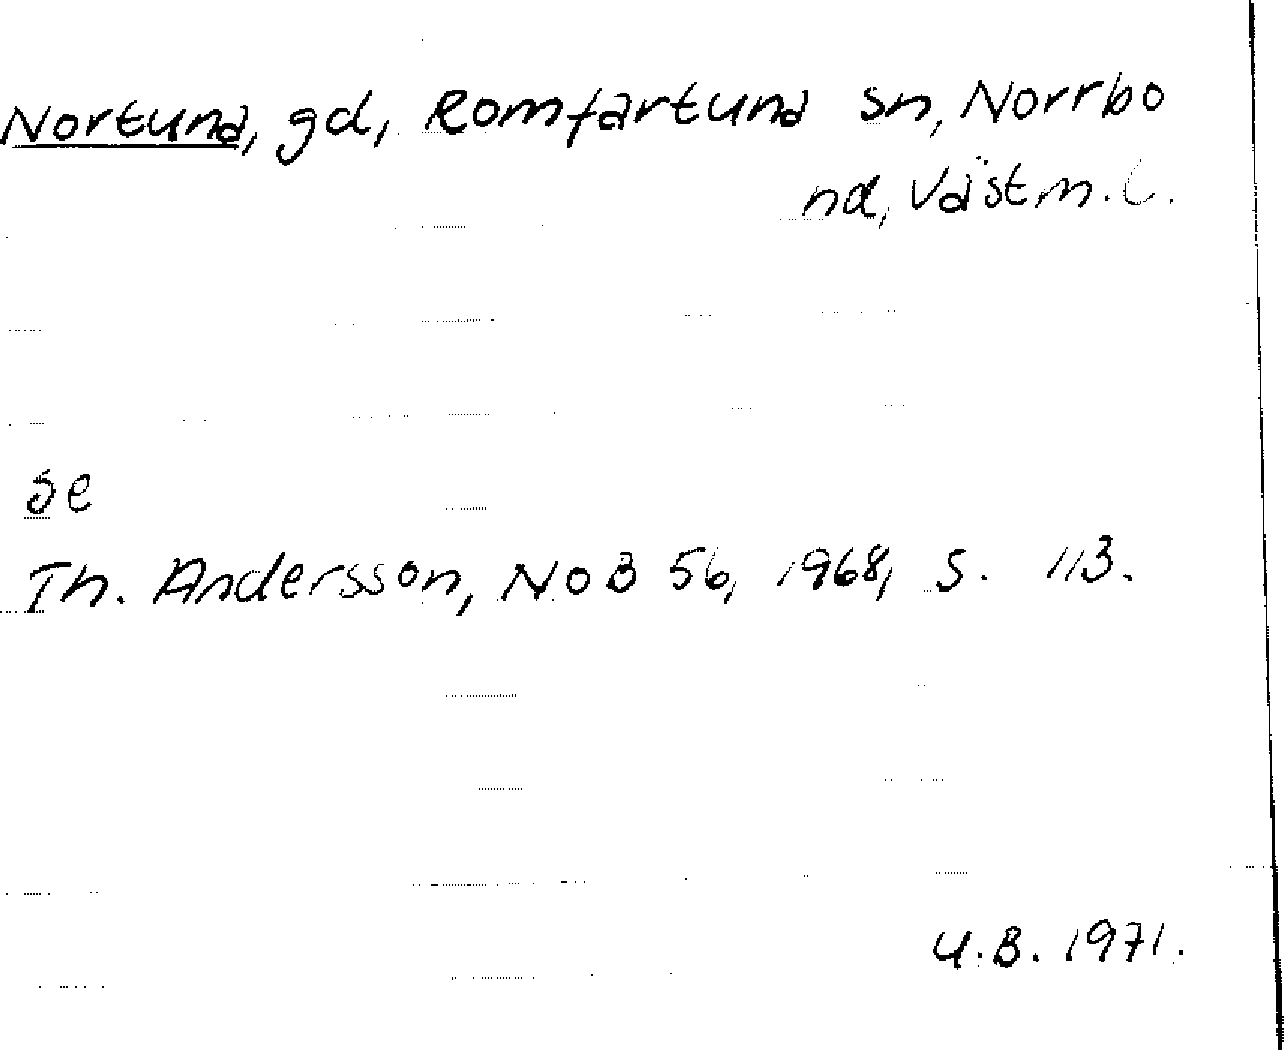 Nortuna, gd, Romfartuna sn, Norrbo
hd, Västm. l.
se
Th. Andersson, NoB 56, 1968, s. 113.
U.B. 1971.